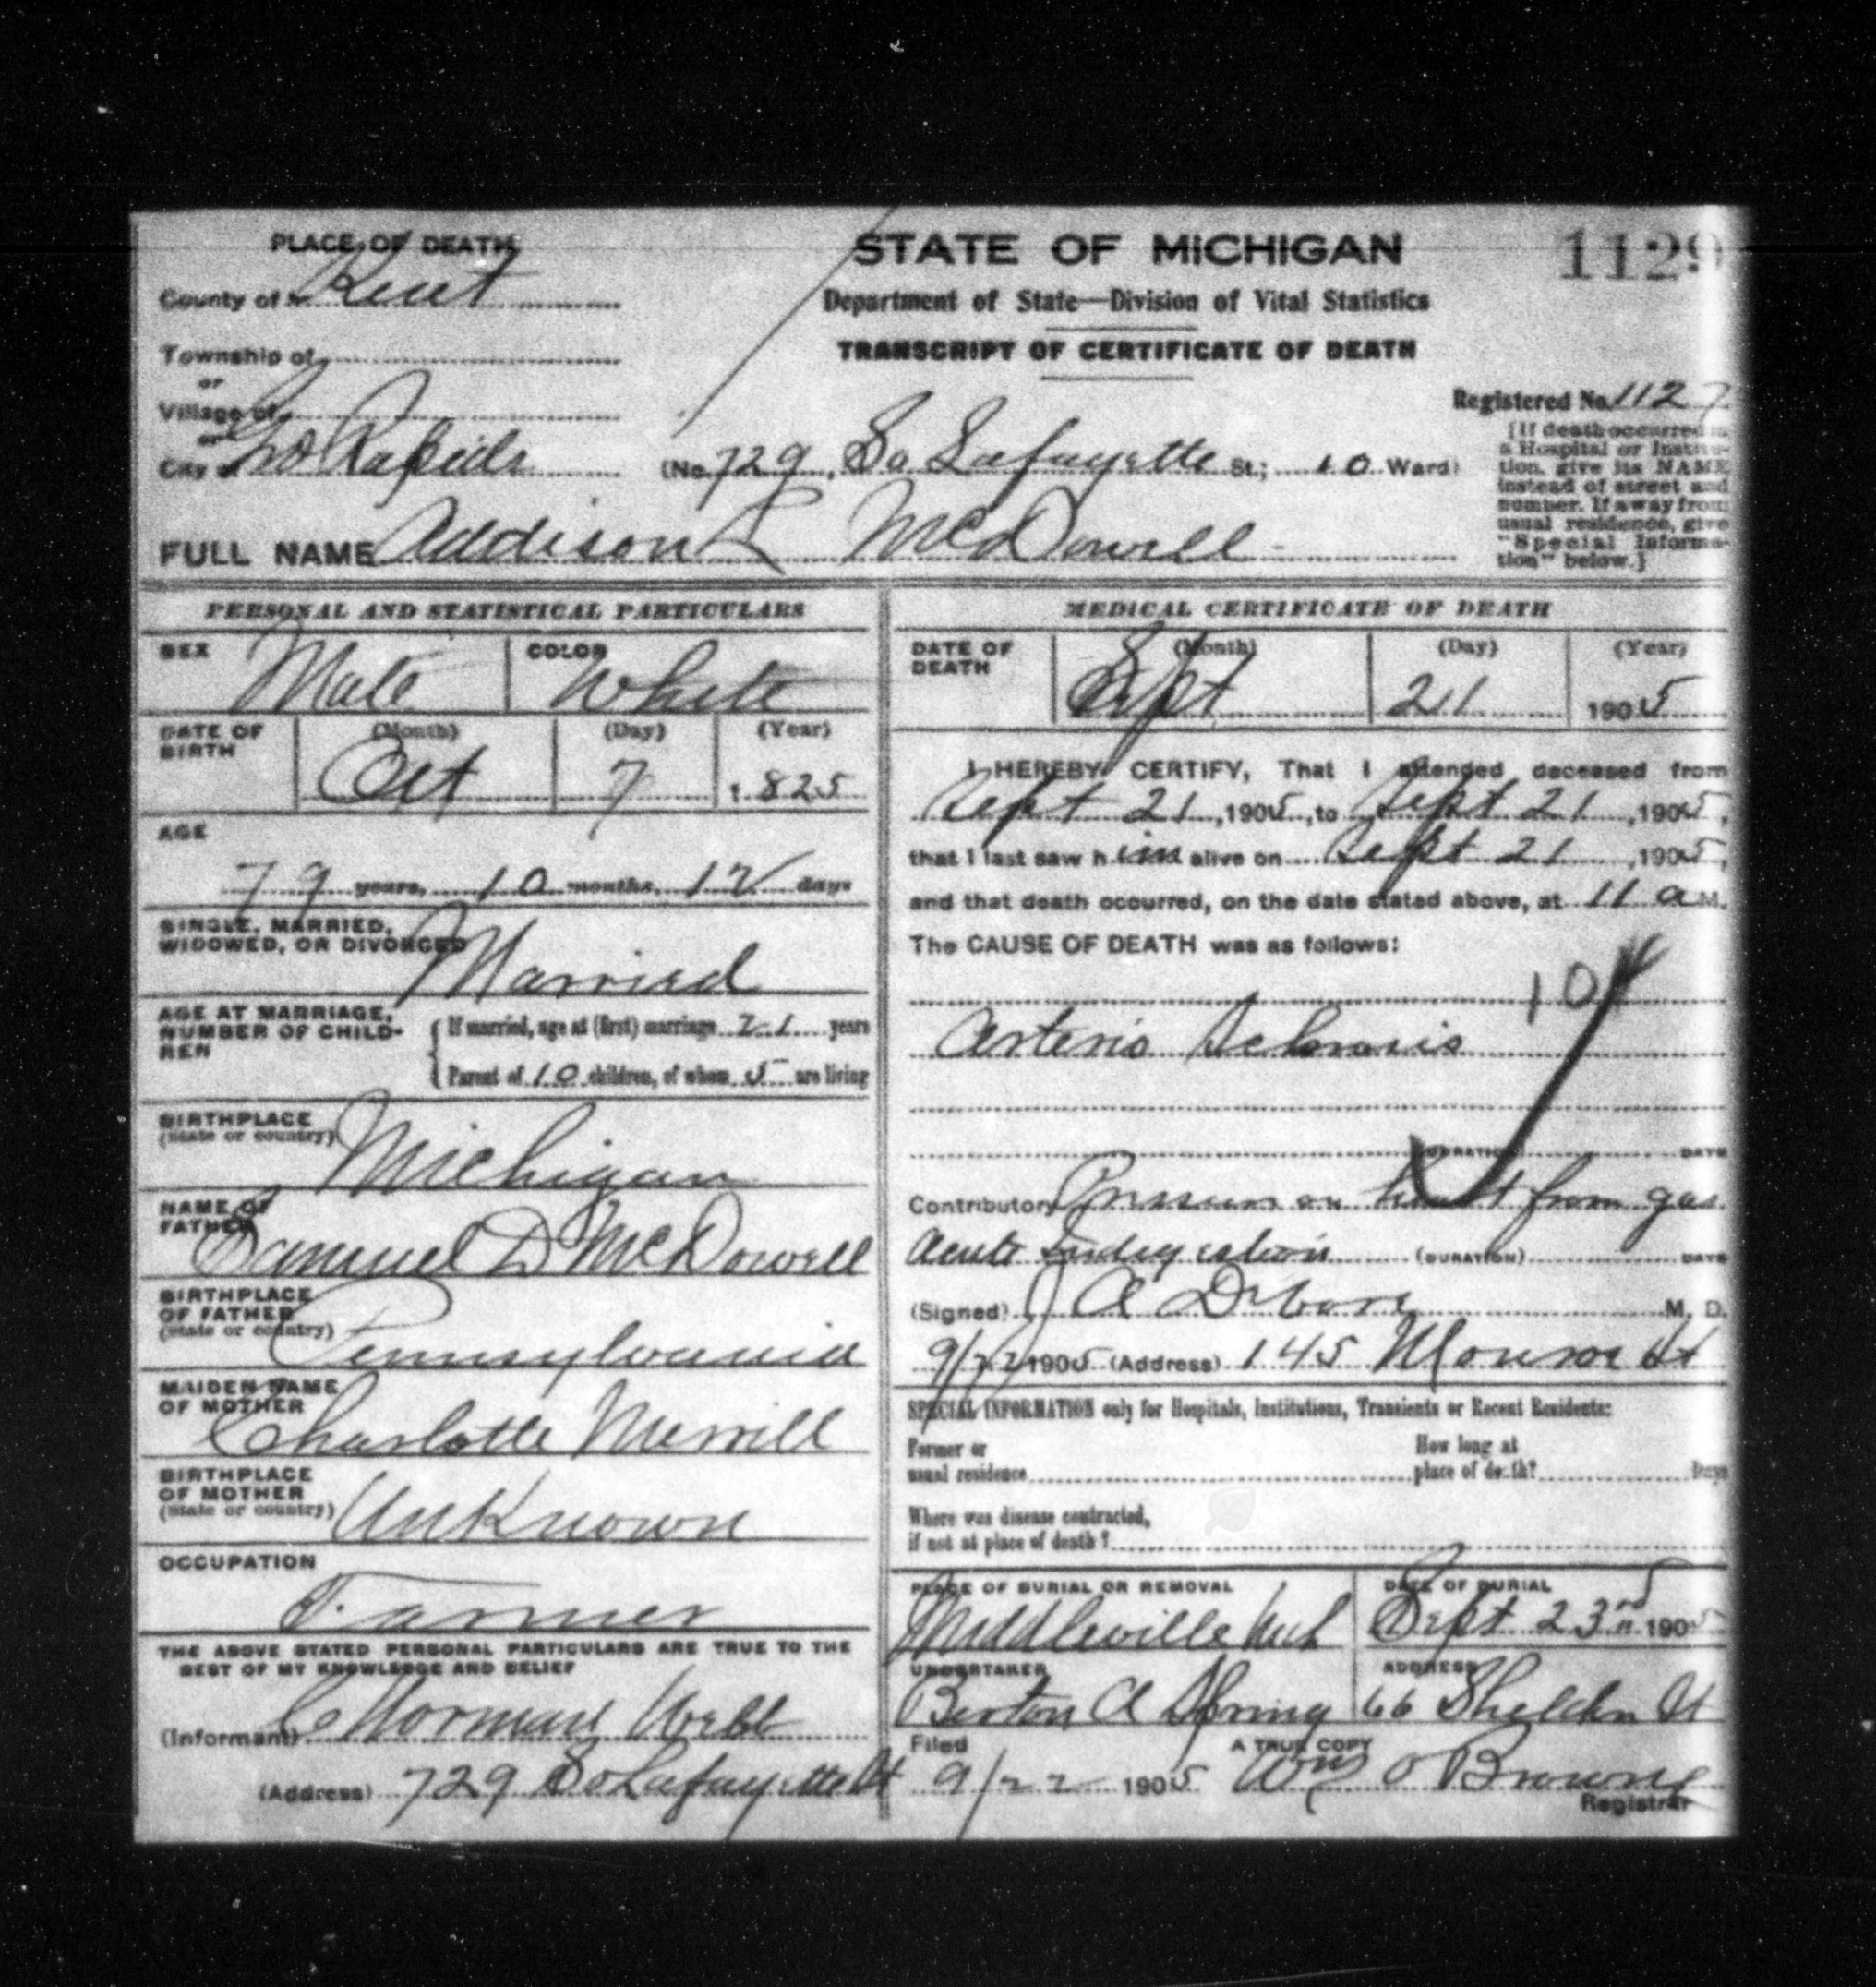 PLACE OF DEATH
County of Kent
Township of
or
Village of
or
City of Gd Rapids
STATE OF MICHIGAN
Department of State—Division of Vital Statistics
TRANSCRIPT OF CERTIFICATE OF DEATH
1129
Registered No. 1127
[If death occurred in
a Hospital or Institu-
tion, give its NAME
instead of street and
number. If away from
usual residence, give
"Special Informa-
tion" below.]
(No. 729, So Lafayette St.; 10 Ward)
FULL NAME Addison L McDowell
PERSONAL AND STATISTICAL PARTICULARS
SEX Male COLOR White
DATE OF BIRTH (Month) Oct (Day) 7 (Year) 1825
AGE
79 years, 10 months, 12 days
SINGLE, MARRIED,
WIDOWED, OR DIVORCED Married
AGE AT MARRIAGE,
NUMBER OF CHILD-
REN
If married, age at (first) marriage 21 years
Parent of 10 children, of whom 5 are living
BIRTHPLACE
(State or country) Michigan
NAME OF
FATHER Samuel D McDowell
BIRTHPLACE
OF FATHER
(State or country) Pennsylvania
MAIDEN NAME
OF MOTHER Charlotte Merrill
BIRTHPLACE
OF MOTHER
(State or country) Unknown
OCCUPATION
Farmer
THE ABOVE STATED PERSONAL PARTICULARS ARE TRUE TO THE
BEST OF MY KNOWLEDGE AND BELIEF
(Informant) C Norman Webb
(Address) 729 So Lafayette St
MEDICAL CERTIFICATE OF DEATH
DATE OF DEATH (Month) Sept (Day) 21 (Year) 1905
I HEREBY CERTIFY, That I attended deceased from
Sept 21, 1905, to Sept 21, 1905,
that I last saw him alive on Sept 21, 1905,
and that death occurred, on the date stated above, at 11 a M.
The CAUSE OF DEATH was as follows:
Arterio Schrosis
(DURATION) DAYS
Contributory Pressure on heart from gas
Acute Indigestion (DURATION) DAYS
(Signed) J A DeVore M. D.
9/22 1905 (Address) 145 Monroe St
SPECIAL INFORMATION only for Hospitals, Institutions, Transients or Recent Residents:
Former or
usual residence
How long at
place of death? Days
Where was disease contracted,
if not at place of death?
PLACE OF BURIAL OR REMOVAL
Middleville Mich
DATE OF BURIAL
Sept 23rd 1905
UNDERTAKER
Berton A Spring
ADDRESS
66 Sheldon St
Filed
9/22 1905
A TRUE COPY
Wm O Browne
Registrar